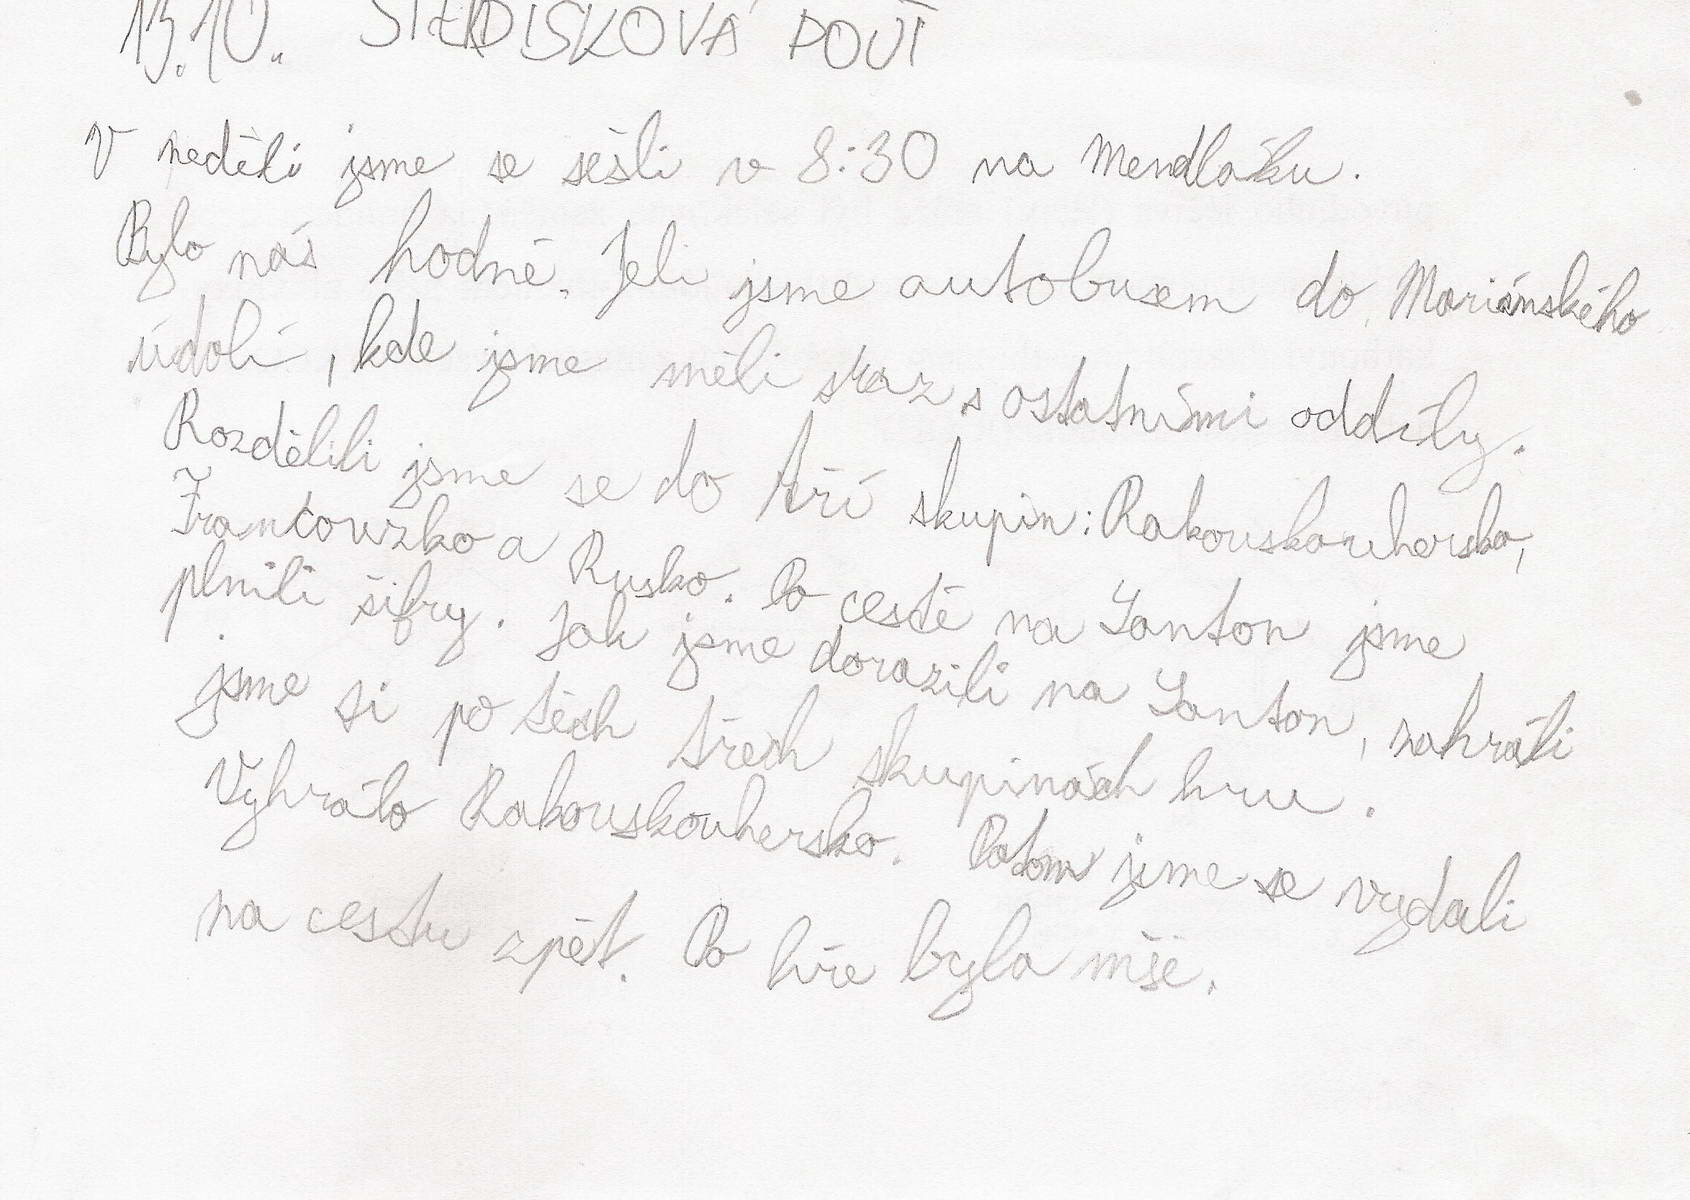 13.10. STŘEDISKOVÁ POUŤ
V neděli jsme se sešli v 8:30 na Mendláku.
Bylo nás hodně. Jeli jsme autobusem do Mariánského
údolí, kde jsme měli sraz s ostatními oddíly.
Rozdělili jsme se do tří skupin: Rakouskouhersko,
Francouzko a Rusko. Po cestě na Lanton jsme
plnili šifry. Jak jsme dorazili na Lanton, zahráli
jsme si po těch třech skupinách hru.
Vyhrálo Rakouskouhersko. Potom jsme se vydali
na cestu zpět. Po hře byla mše.